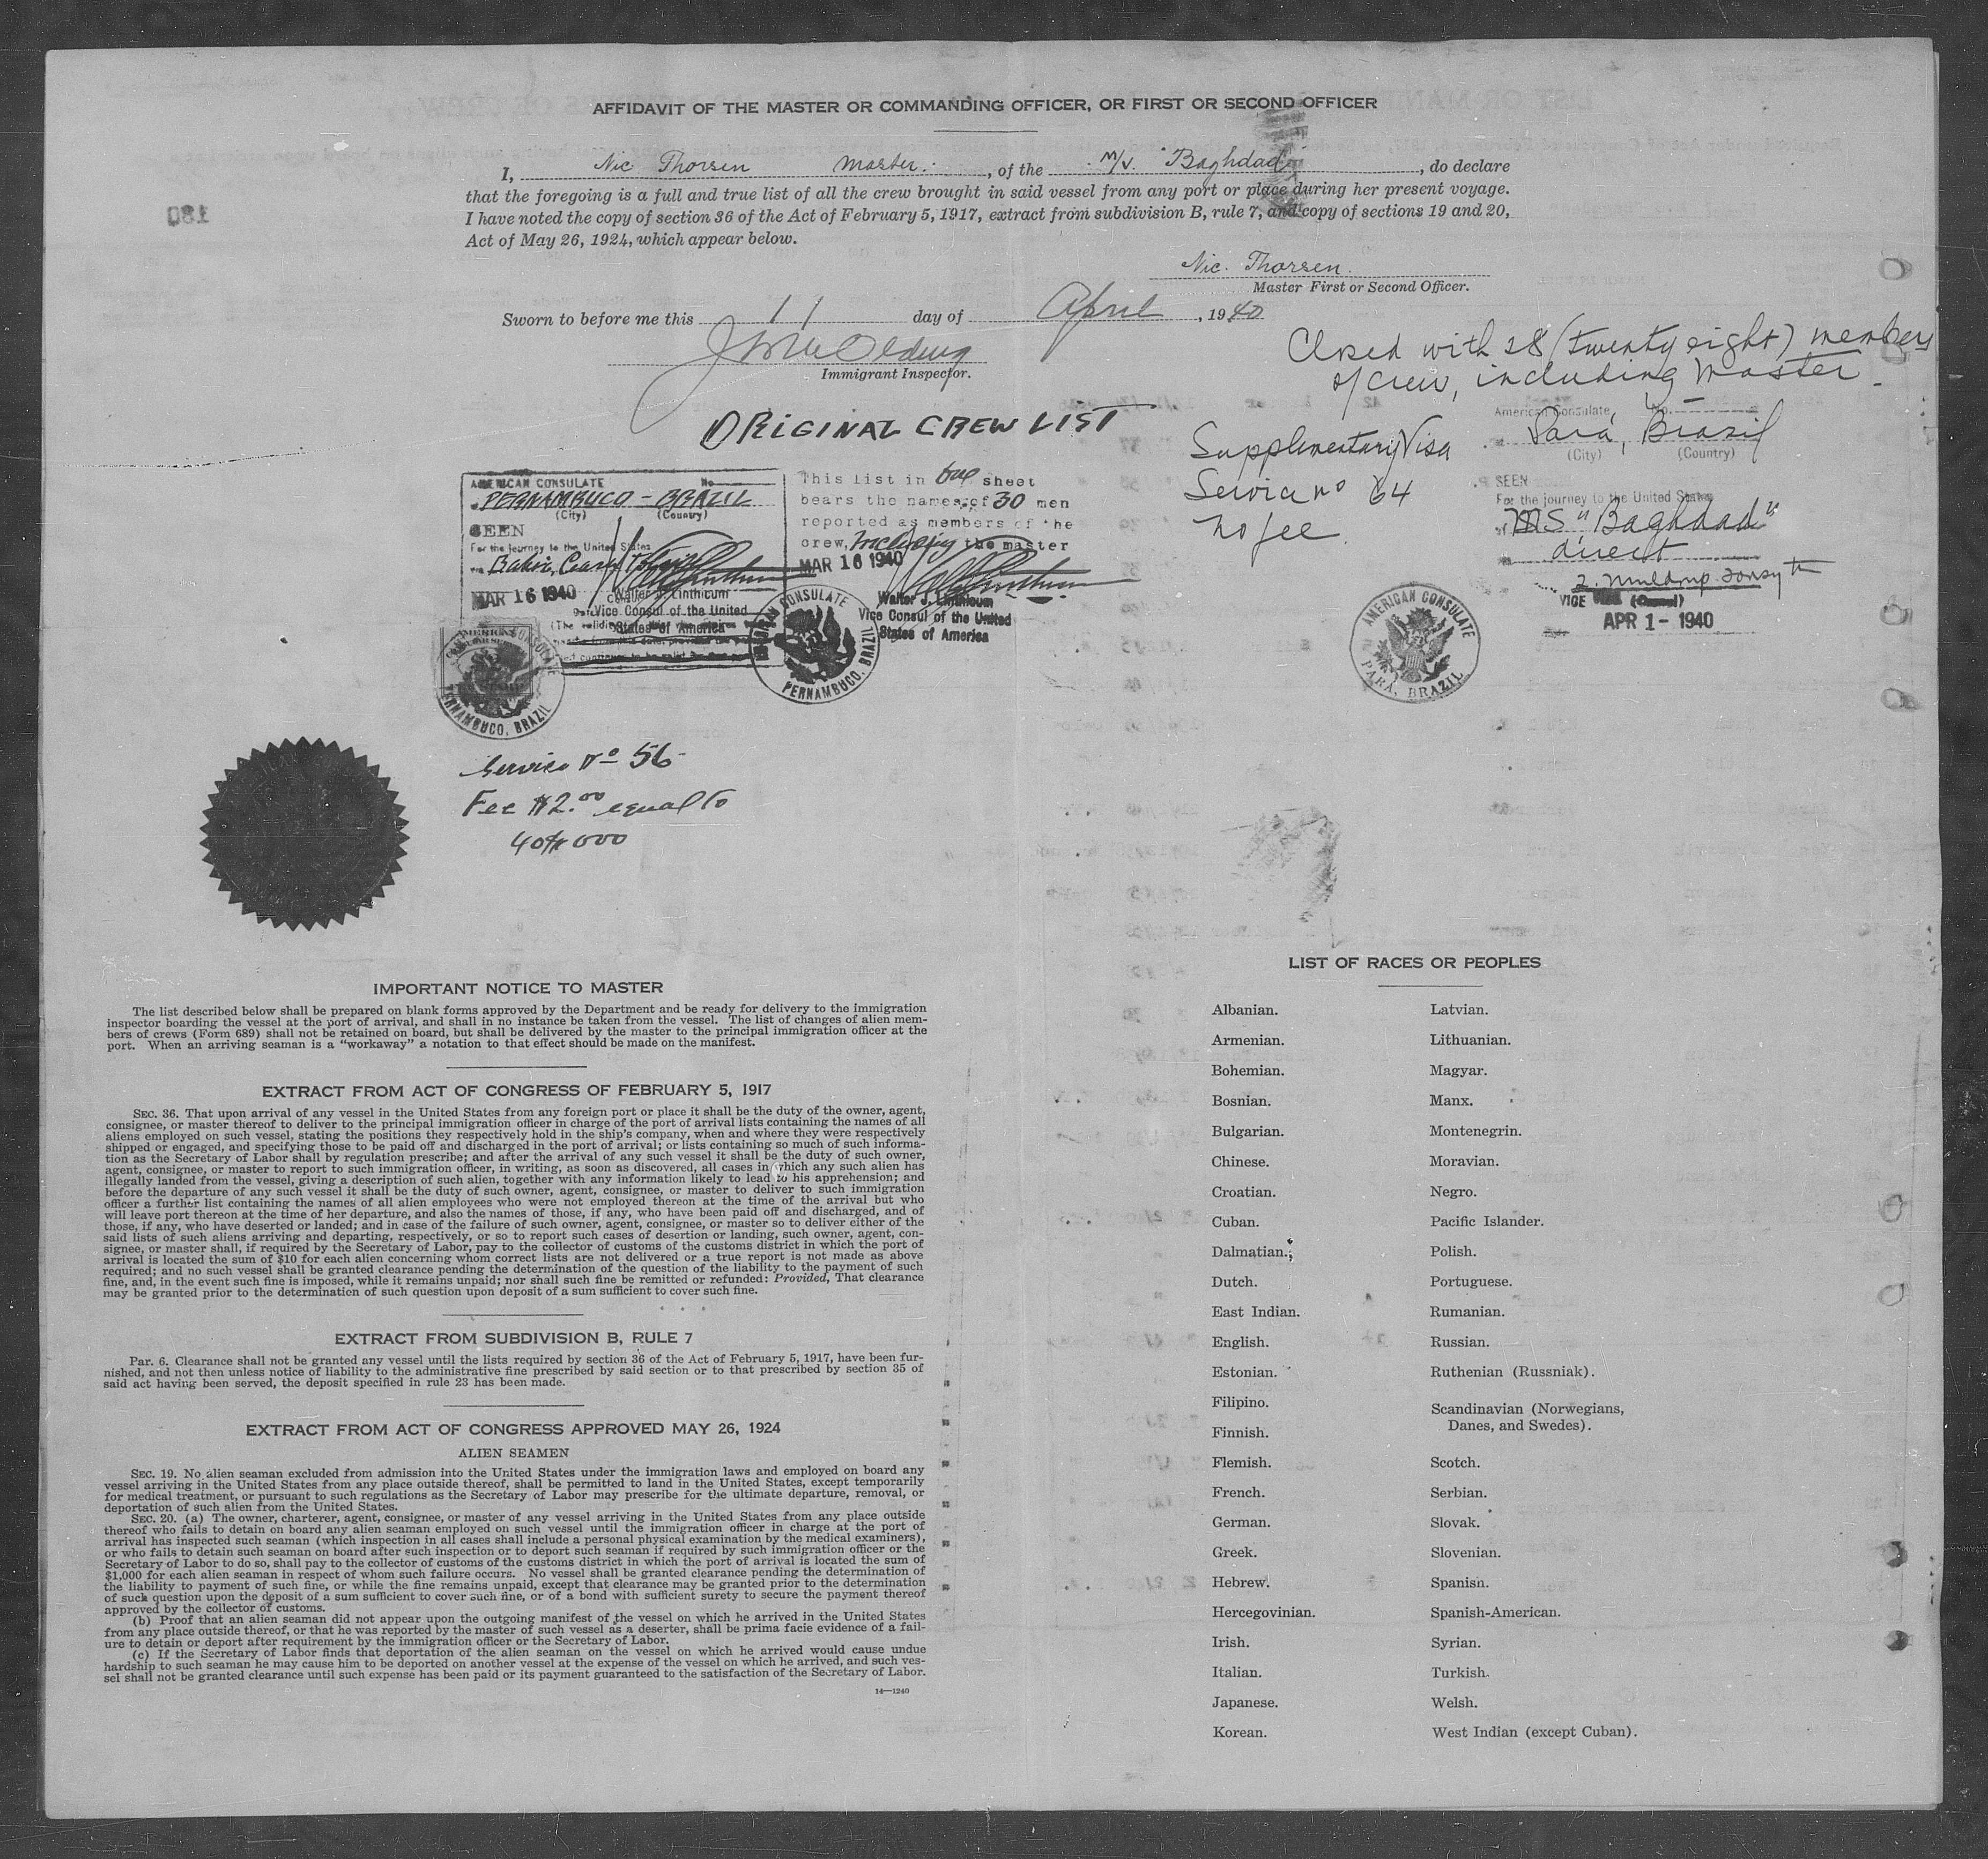 AFFIDAVIT OF THE MASTER OR COMMANDING OFFICER, OR FIRST OR SECOND OFFICER
I, Nic Thorsen Master. , of the M/V. "Baghdad" , do declare
that the foregoing is a full and true list of all the crew brought in said vessel from any port or place during her present voyage.
I have noted the copy of section 36 of the Act of February 5, 1917, extract from subdivision B, rule 7, and copy of sections 19 and 20,
Act of May 26, 1924, which appear below.
180
Nic. Thorsen.
Master First or Second Officer.
Sworn to before me this 11 day of April , 1940
Immigrant Inspector.
Closed with 28 (twenty eight) members
of crew, including Master.
ORIGINAL CREW LIST
AMERICAN CONSULATE No
PERNAMBUCO - BRAZIL
(City) (Country)
SEEN
For the journey to the United States
MAR 16 1940
Walter J. Linthicum
Vice Consul of the United
States of America
This list in one sheet
bears the names of 30 men
reported as members of the
crew, including the master
MAR 16 1940
Walter J. Linthicum
Vice Consul of the United
States of America
AMERICAN CONSULATE
PERNAMBUCO, BRAZIL
PERNAMBUCO, BRAZIL
Supplementary Visa
Service no 64
No fee
American Consulate, No.
Pará, Brazil
(City) (Country)
SEEN
For the journey to the United States
MS "Baghdad"
direct
VICE
APR 1 - 1940
AMERICAN CONSULATE
PARÁ, BRAZIL
Service No 56
Fee $2.00 equal to
40$000
IMPORTANT NOTICE TO MASTER
The list described below shall be prepared on blank forms approved by the Department and be ready for delivery to the immigration
inspector boarding the vessel at the port of arrival, and shall in no instance be taken from the vessel. The list of changes of alien mem-
bers of crews (Form 689) shall not be retained on board, but shall be delivered by the master to the principal immigration officer at the
port. When an arriving seaman is a "workaway" a notation to that effect should be made on the manifest.
EXTRACT FROM ACT OF CONGRESS OF FEBRUARY 5, 1917
SEC. 36. That upon arrival of any vessel in the United States from any foreign port or place it shall be the duty of the owner, agent,
consignee, or master thereof to deliver to the principal immigration officer in charge of the port of arrival lists containing the names of all
aliens employed on such vessel, stating the positions they respectively hold in the ship's company, when and where they were respectively
shipped or engaged, and specifying those to be paid off and discharged in the port of arrival; or lists containing so much of such informa-
tion as the Secretary of Labor shall by regulation prescribe; and after the arrival of any such vessel it shall be the duty of such owner,
agent, consignee, or master to report to such immigration officer, in writing, as soon as discovered, all cases in which any such alien has
illegally landed from the vessel, giving a description of such alien, together with any information likely to lead to his apprehension; and
before the departure of any such vessel it shall be the duty of such owner, agent, consignee, or master to deliver to such immigration
officer a further list containing the names of all alien employees who were not employed thereon at the time of the arrival but who
will leave port thereon at the time of her departure, and also the names of those, if any, who have been paid off and discharged, and of
those, if any, who have deserted or landed; and in case of the failure of such owner, agent, consignee, or master so to deliver either of the
said lists of such aliens arriving and departing, respectively, or so to report such cases of desertion or landing, such owner, agent, con-
signee, or master shall, if required by the Secretary of Labor, pay to the collector of customs of the customs district in which the port of
arrival is located the sum of $10 for each alien concerning whom correct lists are not delivered or a true report is not made as above
required; and no such vessel shall be granted clearance pending the determination of the question of the liability to the payment of such
fine, and, in the event such fine is imposed, while it remains unpaid; nor shall such fine be remitted or refunded: Provided, That clearance
may be granted prior to the determination of such question upon deposit of a sum sufficient to cover such fine.
EXTRACT FROM SUBDIVISION B, RULE 7
Par. 6. Clearance shall not be granted any vessel until the lists required by section 36 of the Act of February 5, 1917, have been fur-
nished, and not then unless notice of liability to the administrative fine prescribed by said section or to that prescribed by section 35 of
said act having been served, the deposit specified in rule 23 has been made.
EXTRACT FROM ACT OF CONGRESS APPROVED MAY 26, 1924
ALIEN SEAMEN
SEC. 19. No alien seaman excluded from admission into the United States under the immigration laws and employed on board any
vessel arriving in the United States from any place outside thereof, shall be permitted to land in the United States, except temporarily
for medical treatment, or pursuant to such regulations as the Secretary of Labor may prescribe for the ultimate departure, removal, or
deportation of such alien from the United States.
SEC. 20. (a) The owner, charterer, agent, consignee, or master of any vessel arriving in the United States from any place outside
thereof who fails to detain on board any alien seaman employed on such vessel until the immigration officer in charge at the port of
arrival has inspected such seaman (which inspection in all cases shall include a personal physical examination by the medical examiners),
or who fails to detain such seaman on board after such inspection or to deport such seaman if required by such immigration officer or the
Secretary of Labor to do so, shall pay to the collector of customs of the customs district in which the port of arrival is located the sum of
$1,000 for each alien seaman in respect of whom such failure occurs. No vessel shall be granted clearance pending the determination of
the liability to payment of such fine, or while the fine remains unpaid, except that clearance may be granted prior to the determination
of such question upon the deposit of a sum sufficient to cover such fine, or of a bond with sufficient surety to secure the payment thereof
approved by the collector of customs.
(b) Proof that an alien seaman did not appear upon the outgoing manifest of the vessel on which he arrived in the United States
from any place outside thereof, or that he was reported by the master of such vessel as a deserter, shall be prima facie evidence of a fail-
ure to detain or deport after requirement by the immigration officer or the Secretary of Labor.
(c) If the Secretary of Labor finds that deportation of the alien seaman on the vessel on which he arrived would cause undue
hardship to such seaman he may cause him to be deported on another vessel at the expense of the vessel on which he arrived, and such ves-
sel shall not be granted clearance until such expense has been paid or its payment guaranteed to the satisfaction of the Secretary of Labor.
14—1240
LIST OF RACES OR PEOPLES
Albanian.
Armenian.
Bohemian.
Bosnian.
Bulgarian.
Chinese.
Croatian.
Cuban.
Dalmatian.
Dutch.
East Indian.
English.
Estonian.
Filipino.
Finnish.
Flemish.
French.
German.
Greek.
Hebrew.
Hercegovinian.
Irish.
Italian.
Japanese.
Korean.
Latvian.
Lithuanian.
Magyar.
Manx.
Montenegrin.
Moravian.
Negro.
Pacific Islander.
Polish.
Portuguese.
Rumanian.
Russian.
Ruthenian (Russniak).
Scandinavian (Norwegians,
Danes, and Swedes).
Scotch.
Serbian.
Slovak.
Slovenian.
Spanish.
Spanish-American.
Syrian.
Turkish.
Welsh.
West Indian (except Cuban).